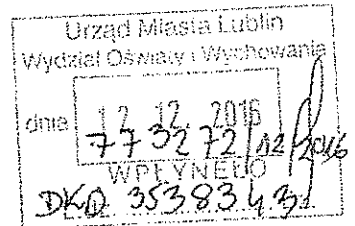 Urząd Miasta Lublin
Wydział Oświaty i Wychowania
dnia 12. 12. 2016
77 32 72/12/2016
WPŁYNĘŁO
DKD 353834.31